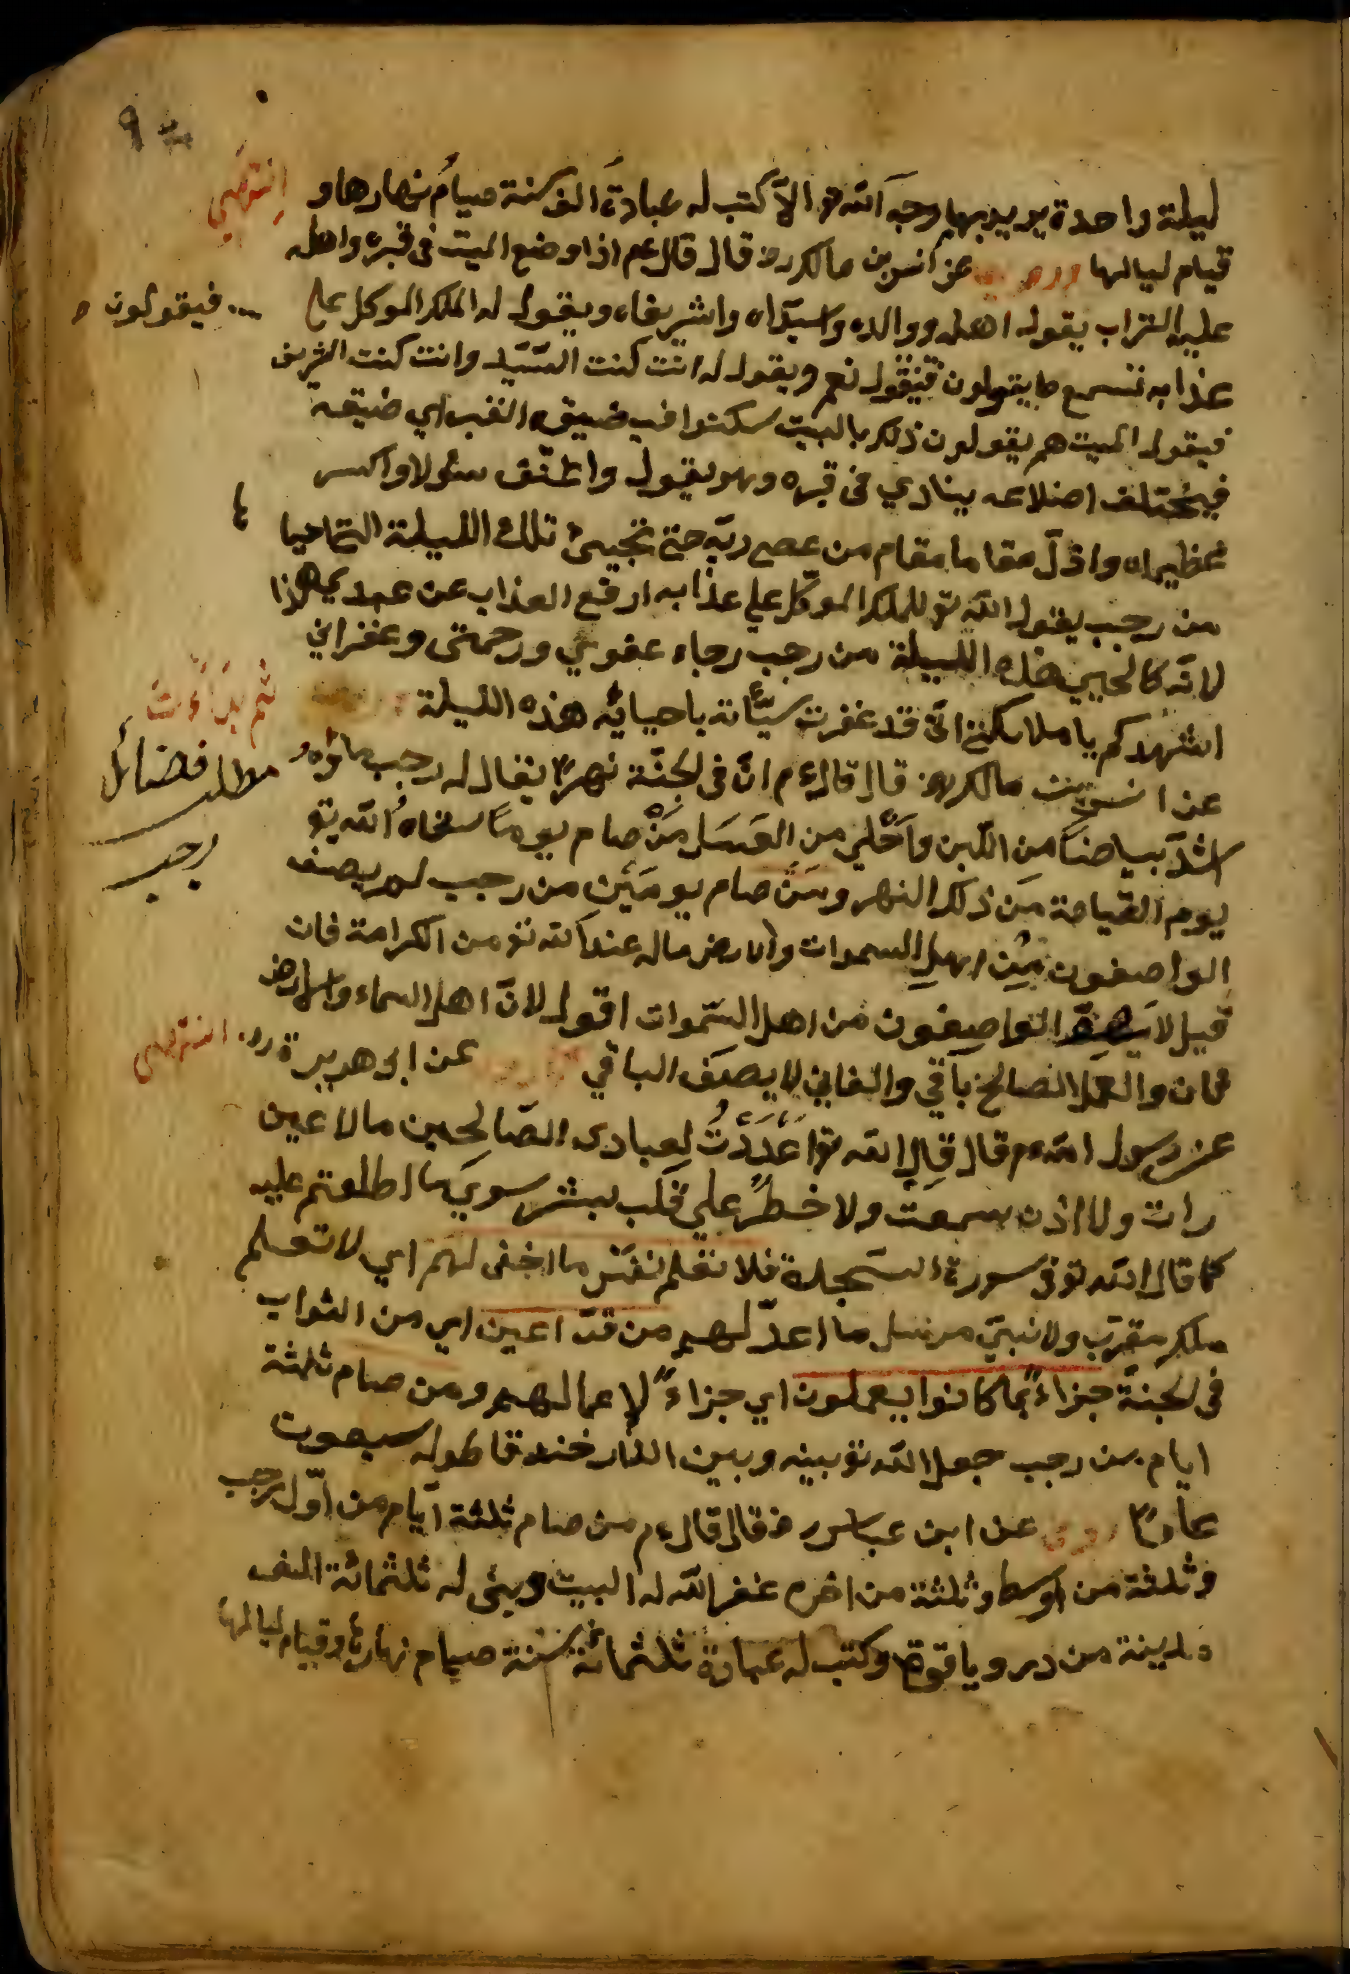 ليلة واحدة يريد بها وجه الله تع الا كتب له عبادة الف سنة صيام نهارها و
انتهى
قيام لياليها روى عن انس بن مالك رض قال قال عم اذا وضع الميت فى قبره واهله
عليه التراب يقول اهله ووالده واسيداه واشريفاه ويقول له الملك الموكل على
فيقولون
عذابه تسمع ما يقولون فيقول نعم ويقول له انت كنت السيد وانت كنت الشريف
فيقول الميت هم يقولون ذلك يا ليت سكتوا ضيق القبر اي ضيقه
فيختلف اضلاعه ينادي فى قبره وهو يقول واكسر
عظيماه واذل مقاما مقام من عصى ربه حتى تجيئ تلك الليلة التى احيا
ها
من رجب يقول الله تع للملك الموكل على عذابه ارفع العذاب عن عبدي هذا
لانه كان يحيى هذه الليلة من رجب رجاء عفوي ورحمتى وغفرانى
اشهدكم يا ملائكتى انى قد غفرت سيئاته باحيائه هذه الليلة
مطلب فضائل
رجب
عن انس بن مالك رض قال قال عم ان فى الجنة نهرا يقال له رجب ماؤه
اشد بياضا من اللبن واحلى من العسل من صام يوما سقاه الله تع
يوم القيامة من ذلك النهر ومن صام يومين من رجب لم يصف
الواصفون من اهل السموات والارض ماله عند الله تع من الكرامة فان
قيل لا يصف الواصفون من اهل السموات اقول لان اهل السماء والارض
فان والعمل الصالح باقي والفاني لا يصف الباقي عن ابى هريرة رض
انتهى
عن رسول الله عم قال قال الله تع اعددت لعبادى الصالحين ما لا عين
رات ولا اذن سمعت ولا خطر على قلب بشر سوى ما اطلعتم عليه
كما قال الله تع فى سورة السجدة فلا تعلم نفس ما اخفى لهم اي لا تعلم
ملك مقرب ولا نبي مرسل ما اعد لهم من قرة اعين اي من الثواب
فى الجنة جزاء بما كانوا يعملون اي جزاء لاعمالهم ومن صام ثلثة
ايام من رجب جعل الله تع بينه وبين النار خندقا طوله سبعون
عاما روى عن ابن عباس رض قال قال عم من صام ثلثة ايام من اول رجب
وثلثة من اوسط وثلثة من اخره غفر الله له البيت وبنى له ثلثمائة الف
مدينة من در وياقوة وكتب له عبادة ثلثمائة سنة صيام نهارها وقيام لياليها